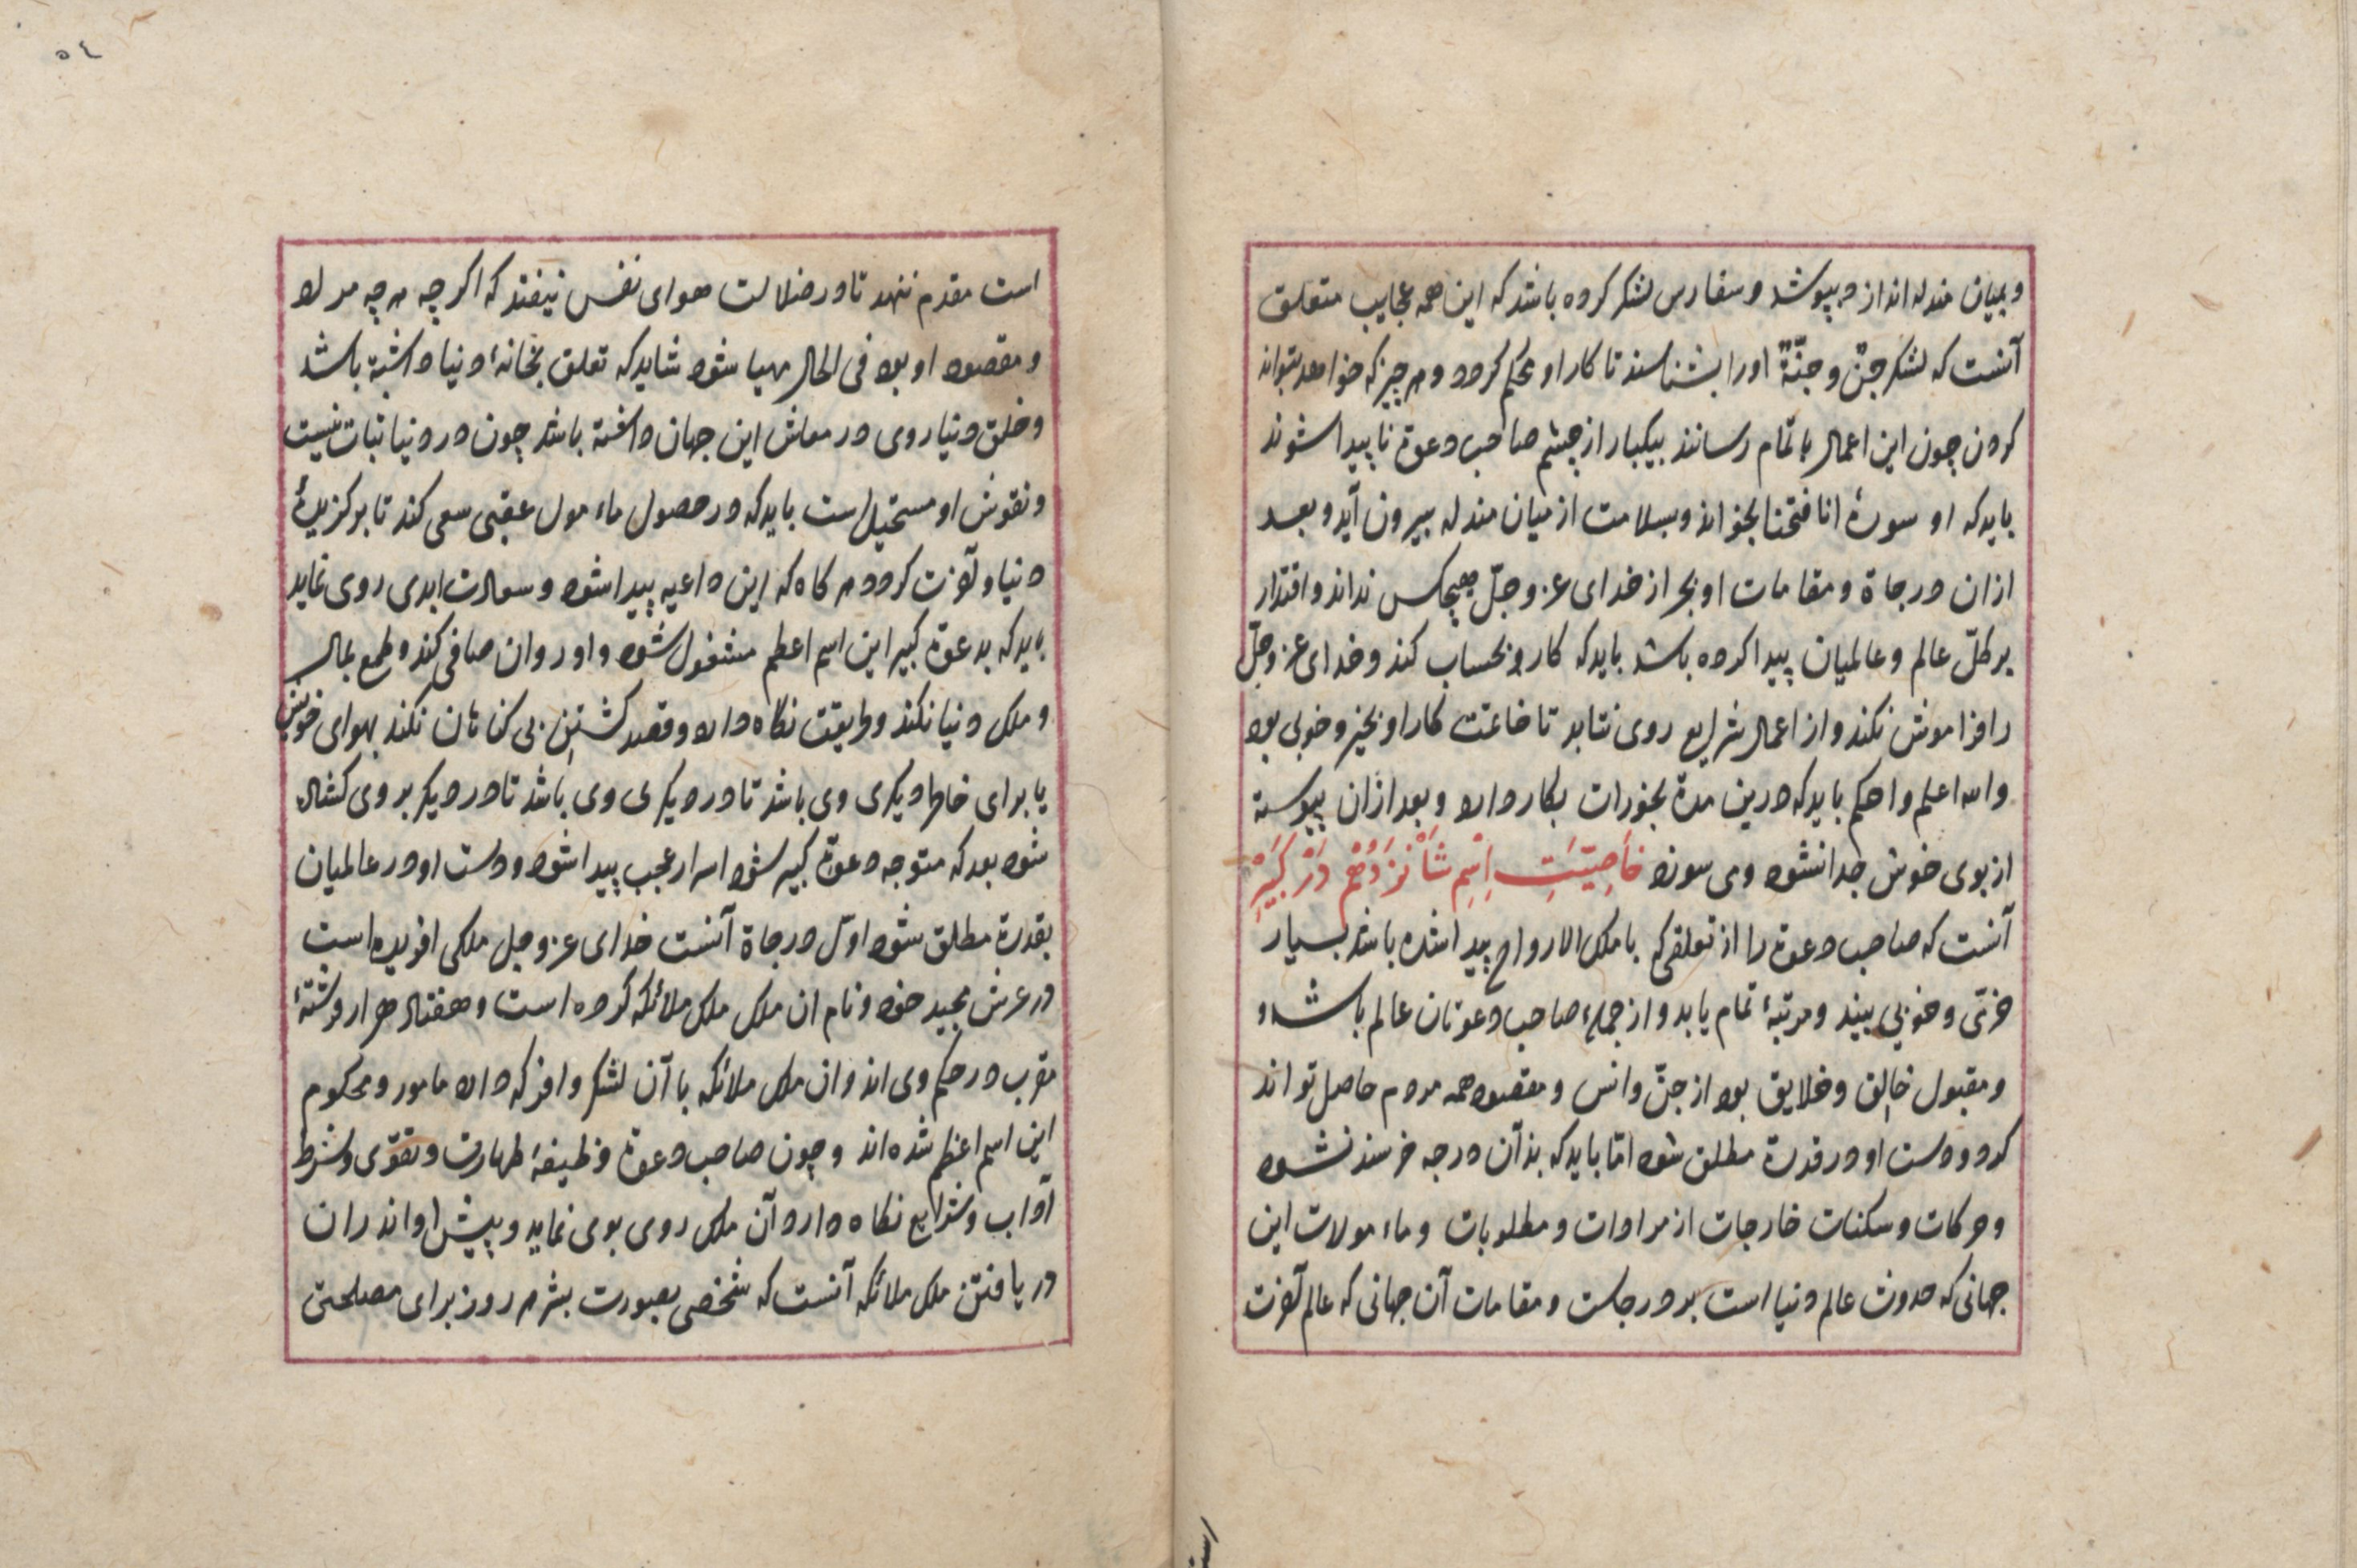 وبمیان مندله انداز دبپوشد وسفارس لشکر کرده باشد که این همه عجایب متعلق
آنست که لشکر جنّ وجنّةٌ اورا بشناسند تا کار او محکم کردد وهر چیز که خواهد بتواند
کردن چون این اعمال باتمام رسانند بیکبار از چشم صاحب دعوة ناپیدا شوند
باید که او سورهٔ انا فتحنا بخواند وبسلامت از میان مندله بیرون آید وبعد
ازان درجاة ومقامات او بجز از خدای عز وجلّ هیچکس نداند واقتدار
بر کلّ عالم وعالمیان پیدا کرده باشد باید که کار بحساب کند وخدای عز وجلّ
را فراموش نکند واز اعمال شرایع روی نتابد تا خاتمت کار او بخیر وخوبی بود
والله اعلم واحکم باید که درین مدة بخورات بکار دارد وبعد ازان پیوسته
از بوی خوش جدا نشود ومی سوزد خَاصِیَّتِ اِسْمِ شَانْزَدُهُمْ دَرْ کَبِیرِ
آنست که صاحب دعوة را از تعلقی که با ملک الارواح پیدا شده باشد بسیار
خرّمی وخوبی بیند ومرتبهٔ تمام یابد واز جملهٔ صاحب دعوتان عالم باشد و
ومقبول خالق وخلایق بود از جنّ وانس ومقصود همه مردم حاصل تواند
کرد ودست او در قدرة مطلق شود امّا باید که بذآن درجه خرسند نشود
وحرکات وسکنات خارجات از مرادات ومطلوبات وماء مولات این
جهانی که حدوث عالم دنیا است بر درجات ومقامات آن جهانی که عالم آخرت
٥٤
است مقدم ننهد تا در ضلالت هوای نفس نیفتد که اکر چه هر چه مراد
ومقصود او بود فی الحال مهیا شود شاید که تعلق بخانهٔ دنیا داشته باشد
وخلق دنیا روی در معاش این جهان داشته باشد چون در دنیا ثبات نیست
ونقوش او مستحیل است باید که در حصول ماء مول عقبی سعی کند تا برکزیدهٔ
دنیا وآخرت کردد هر کاه که این داعیه پیدا شود وسعادت ابدی روی نماید
باید که بدعوة کبیر این اسم اعظم مشغول شود واو روان صافی کند وطمع بمال
وملک دنیا نکند ووایقت نکاه دارد وقصد کشتن بی کناهان نکند بهوای خویش
یا برای خاطر دیکری وی باشد تا در دیکری وی باشد تا در دیکر بر وی کشاده
شود بعد که متوجه دعوة کبیر شود اسرار عجب پیدا شود ودست او در عالمیان
بقدرة مطلق شود اوّل درجاة آنست خدای عز وجل ملکی افریده است
در عرش مجید خود ونام ان ملک ملک ملائکه کرده است وهفتاد هزار فرشتهٔ
مقرب در حکم وی اند وان ملک ملائکه با آن لشکر وافر که دارد مامور ومحکوم
این اسم اعظم شده‌اند وچون صاحب دعوة وظیفهٔ طهارت وتقوّی وشرط
آداب وشرایع نکاه دارد آن ملک روی بوی نماید وپیش او اند ران
دریافتن ملک ملائکه آنست که شخصی بصورت بشر هر روز برای مصلحتی